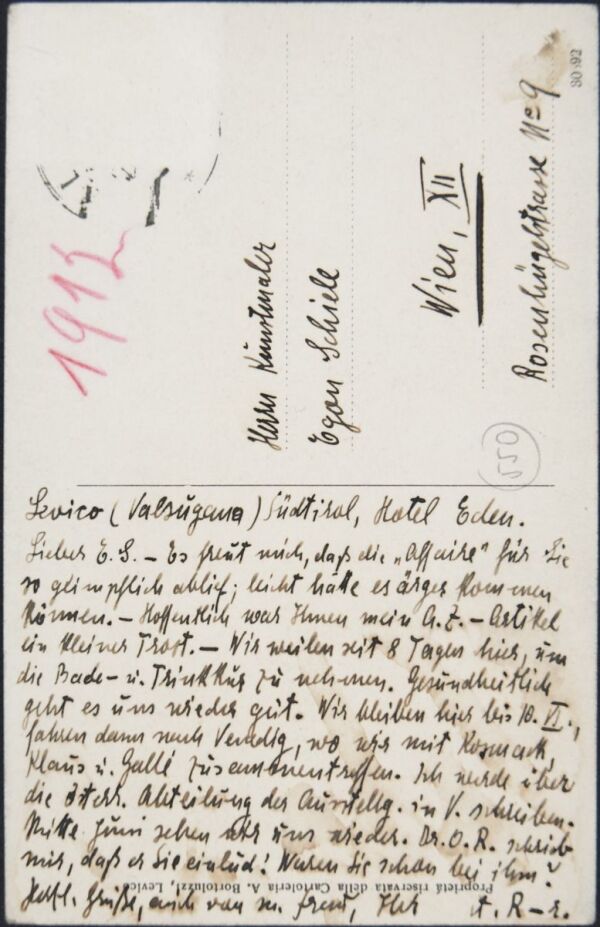 1912
Herrn Kunstmaler
Egon Schiele
Wien, XII
Rosenhügelstrasse No 9
30592
550
Levico (Valsugana) Südtirol, Hotel Eden.
Lieber E. S. – Es freut mich, daß die „Affaire" für Sie
so glimpflich ablief; leicht hätte es ärger kommen
können. – Hoffentlich war Ihnen mein A. Z. – Artikel
ein kleiner Trost. – Wir weilen seit 8 Tagen hier, um
die Bade- u. Trinkkur zu nehmen. Gesundheitlich
geht es uns wieder gut. Wir bleiben hier bis 10. VI.,
fahren dann nach Venedig, wo wir mit Kosmack,
Klaus u. Gallé zusammentreffen. Ich werde über
die österr. Abteilung der Ausstellg. in V. schreiben.
Mitte Juni sehen wir uns wieder. Dr. O. R. schrieb
mir, daß er Sie einlud! Waren Sie schon bei ihm?
Herzl. Grüße, auch von m. Frau, Ihr A. R–r.
Proprietà riservata della Cartoleria A. Bortoluzzi, Levico